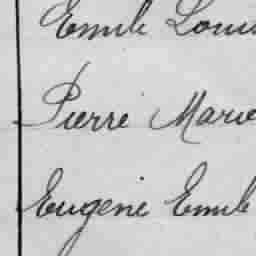 Emile Louis
Pierre Marie
Eugène Emile